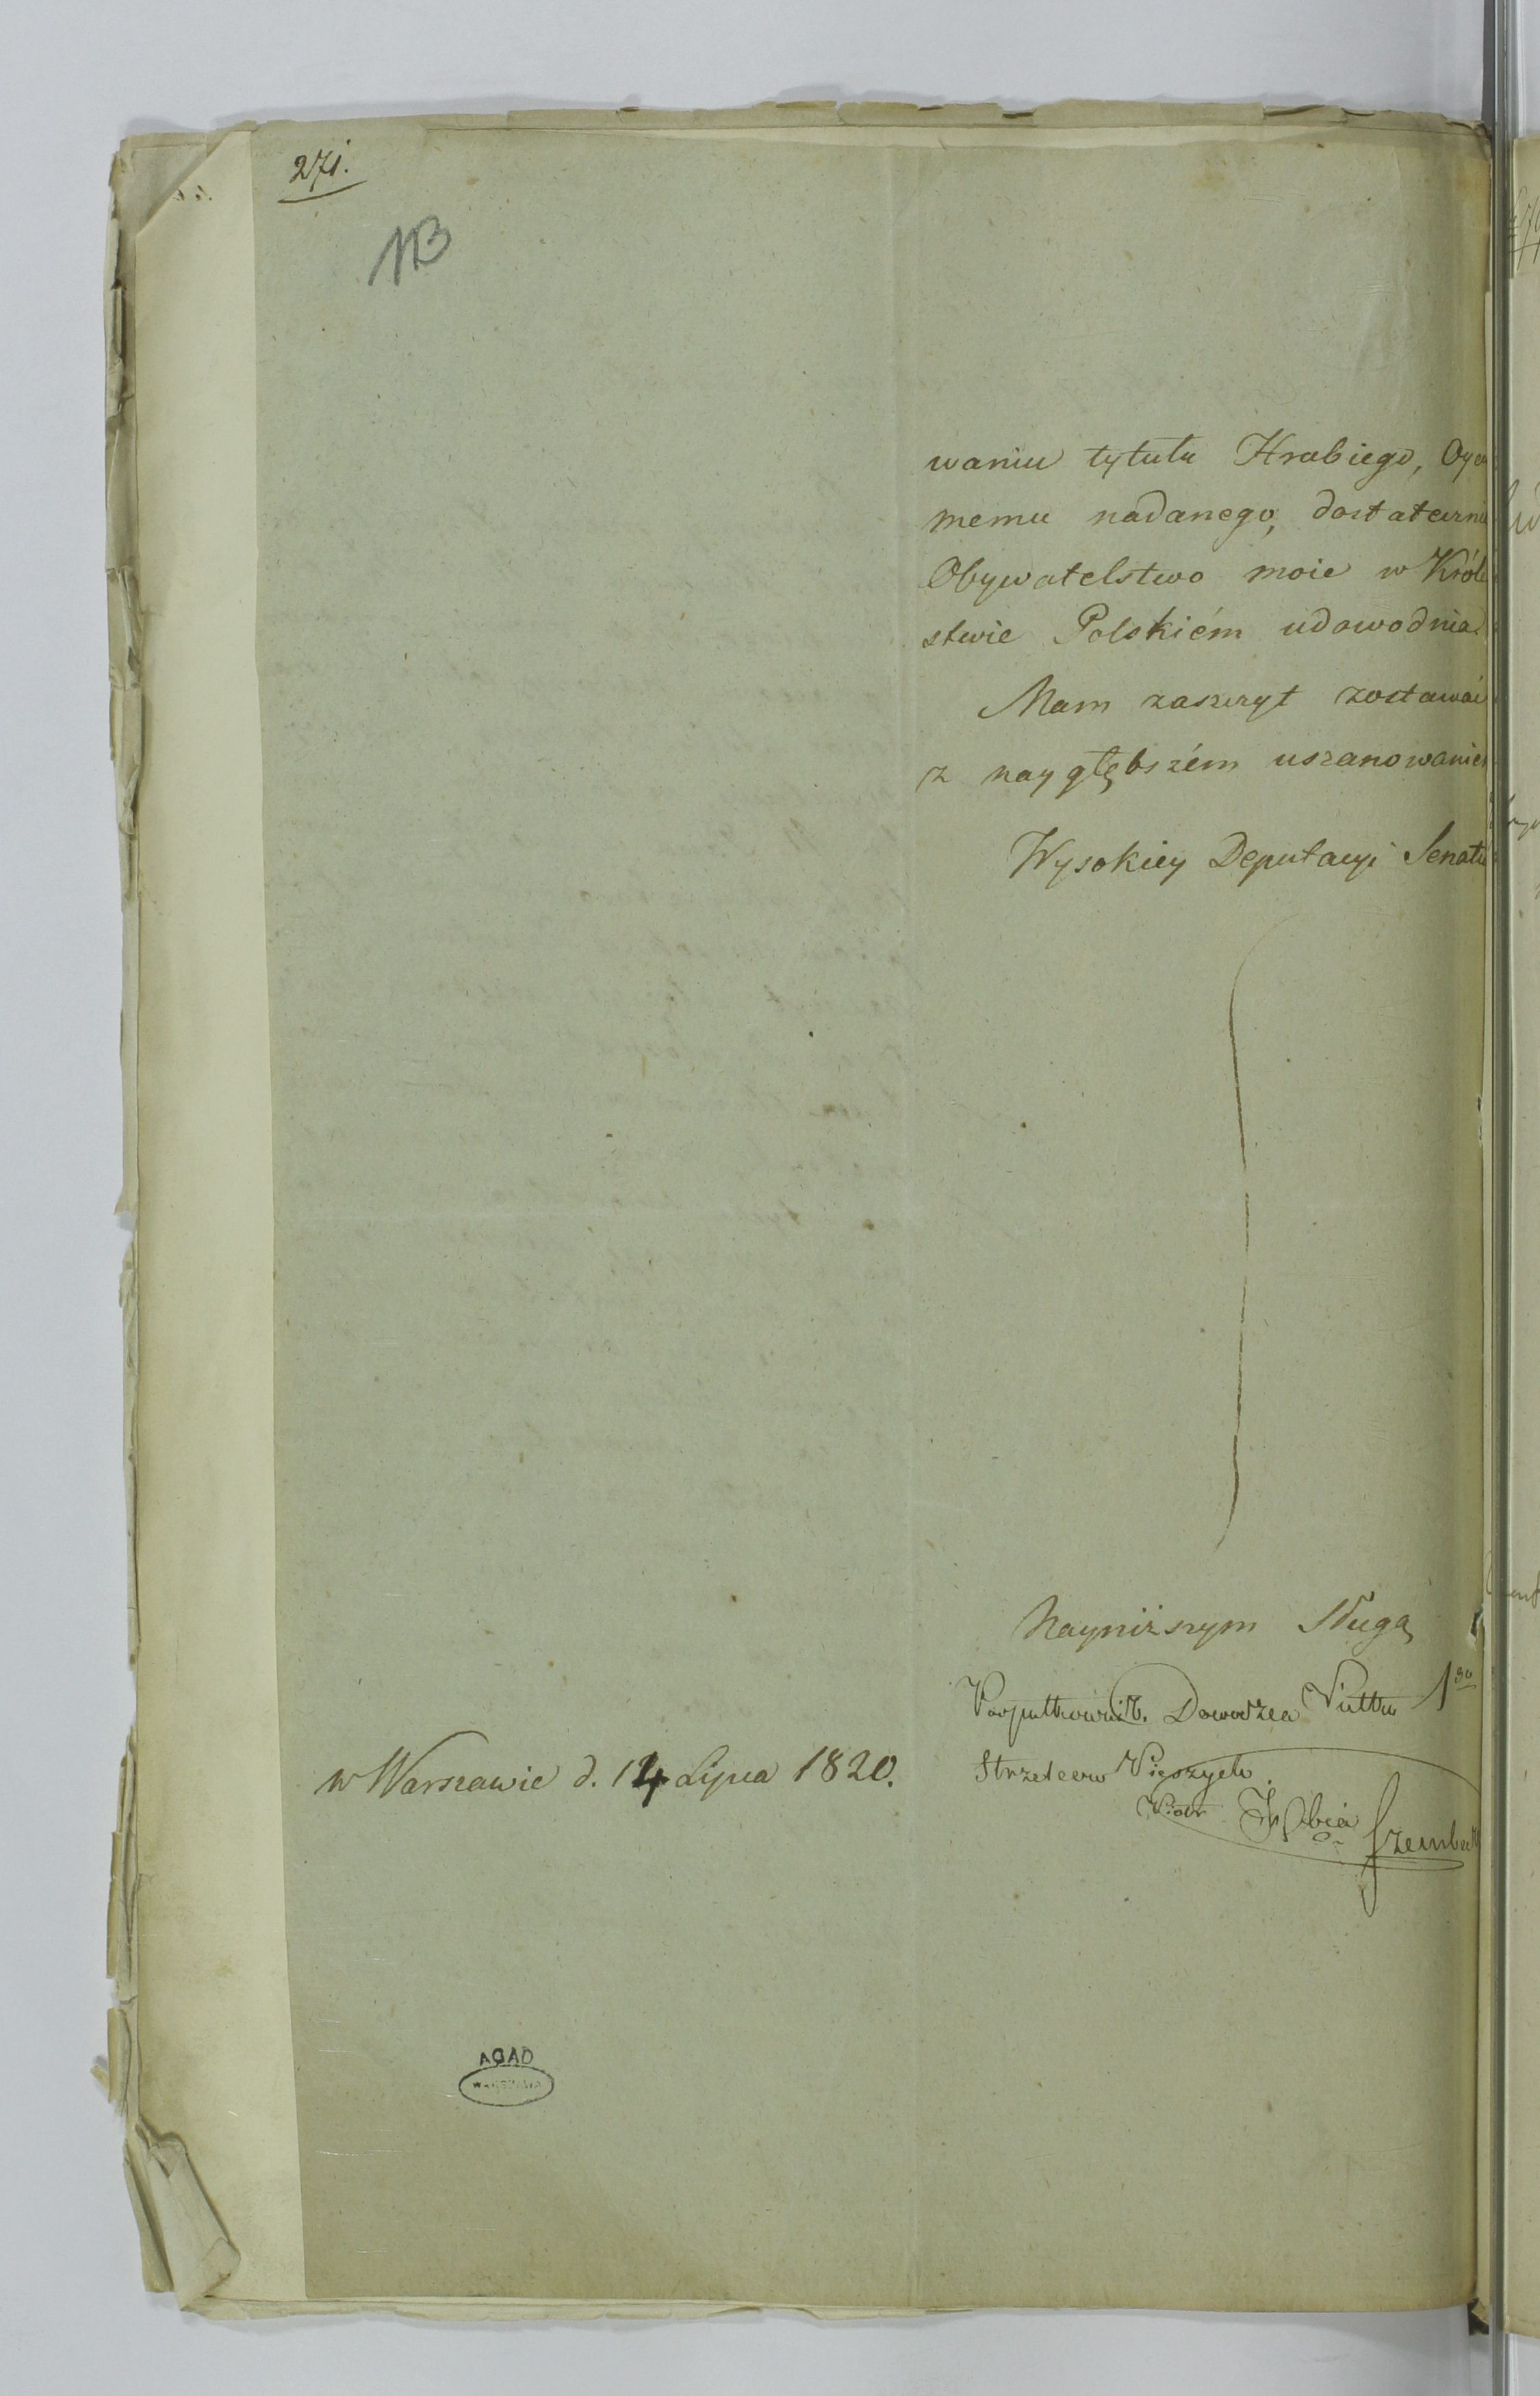 271.
113
waniu tytułu Hrabiego, Oyc
memu nadanego, dostateczni
Obywatelstwo moie w Króle
stwie Polskiém udowodnia
Mam zaszczyt zostawać
z naygłębszém uszanowanie
Wysokiey Deputacyi Senatu
Nayniższym Sługą
Podpułkownik. Dowódzca Pułku 1go
w Warszawie d. 14 Lipca 1820.
Strzelców Pieszych
Piotr Hrabia Szembek
AGAD
WARSZAWA